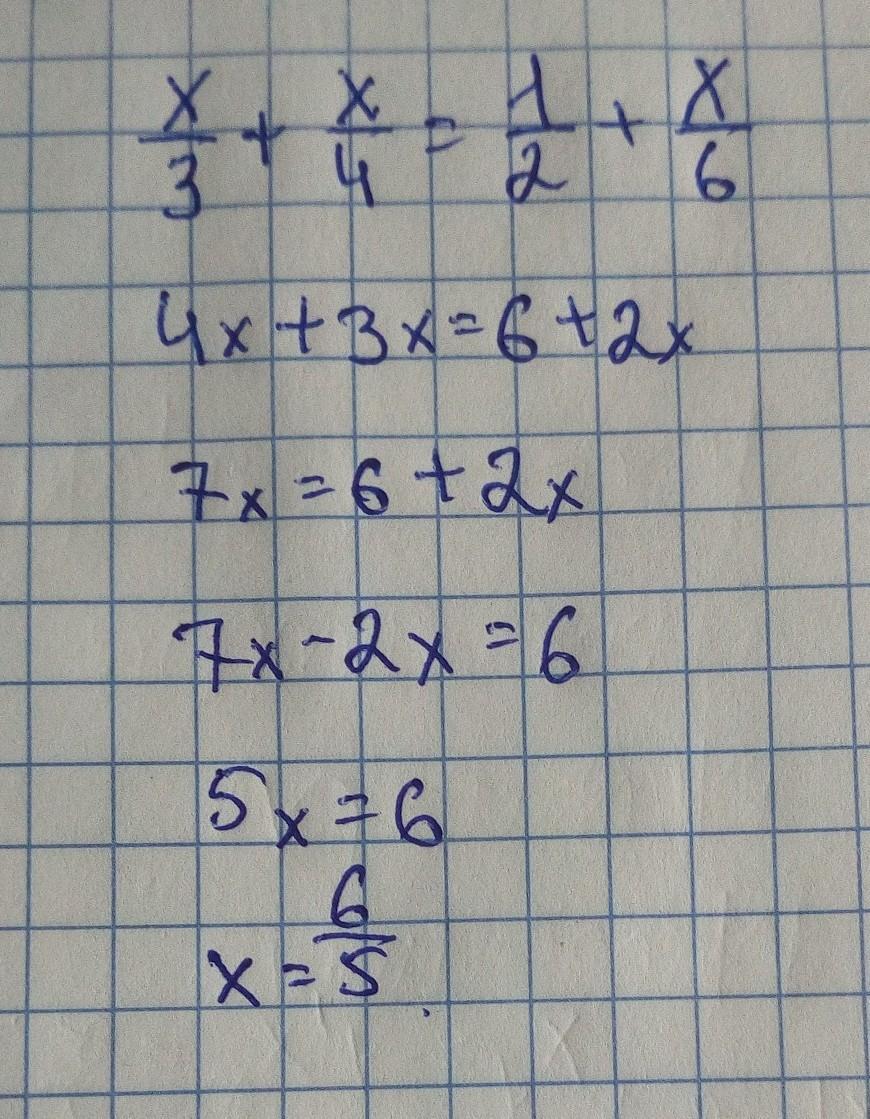 x/3 + x/4 = 1/2 + x/6
4x + 3x = 6 + 2x
7x = 6 + 2x
7x - 2x = 6
5x = 6
x = 6/5